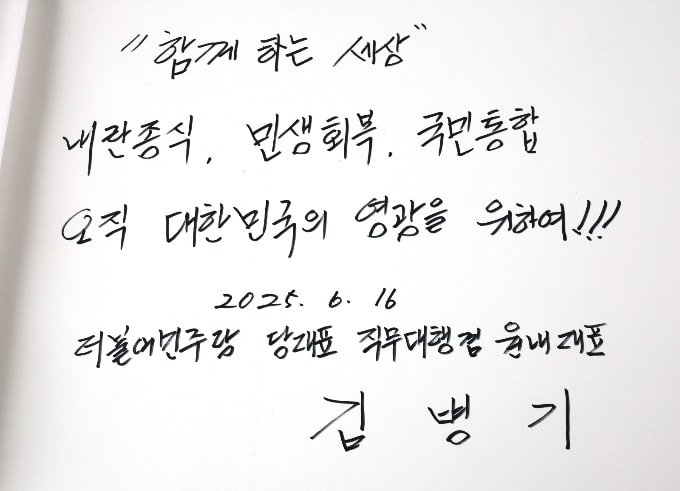 "함께 하는 세상"
내란종식, 민생회복, 국민통합
오직 대한민국의 영광을 위하여!!!
2025. 6. 16
더불어민주당 당대표 직무대행겸 원내대표
김 병 기